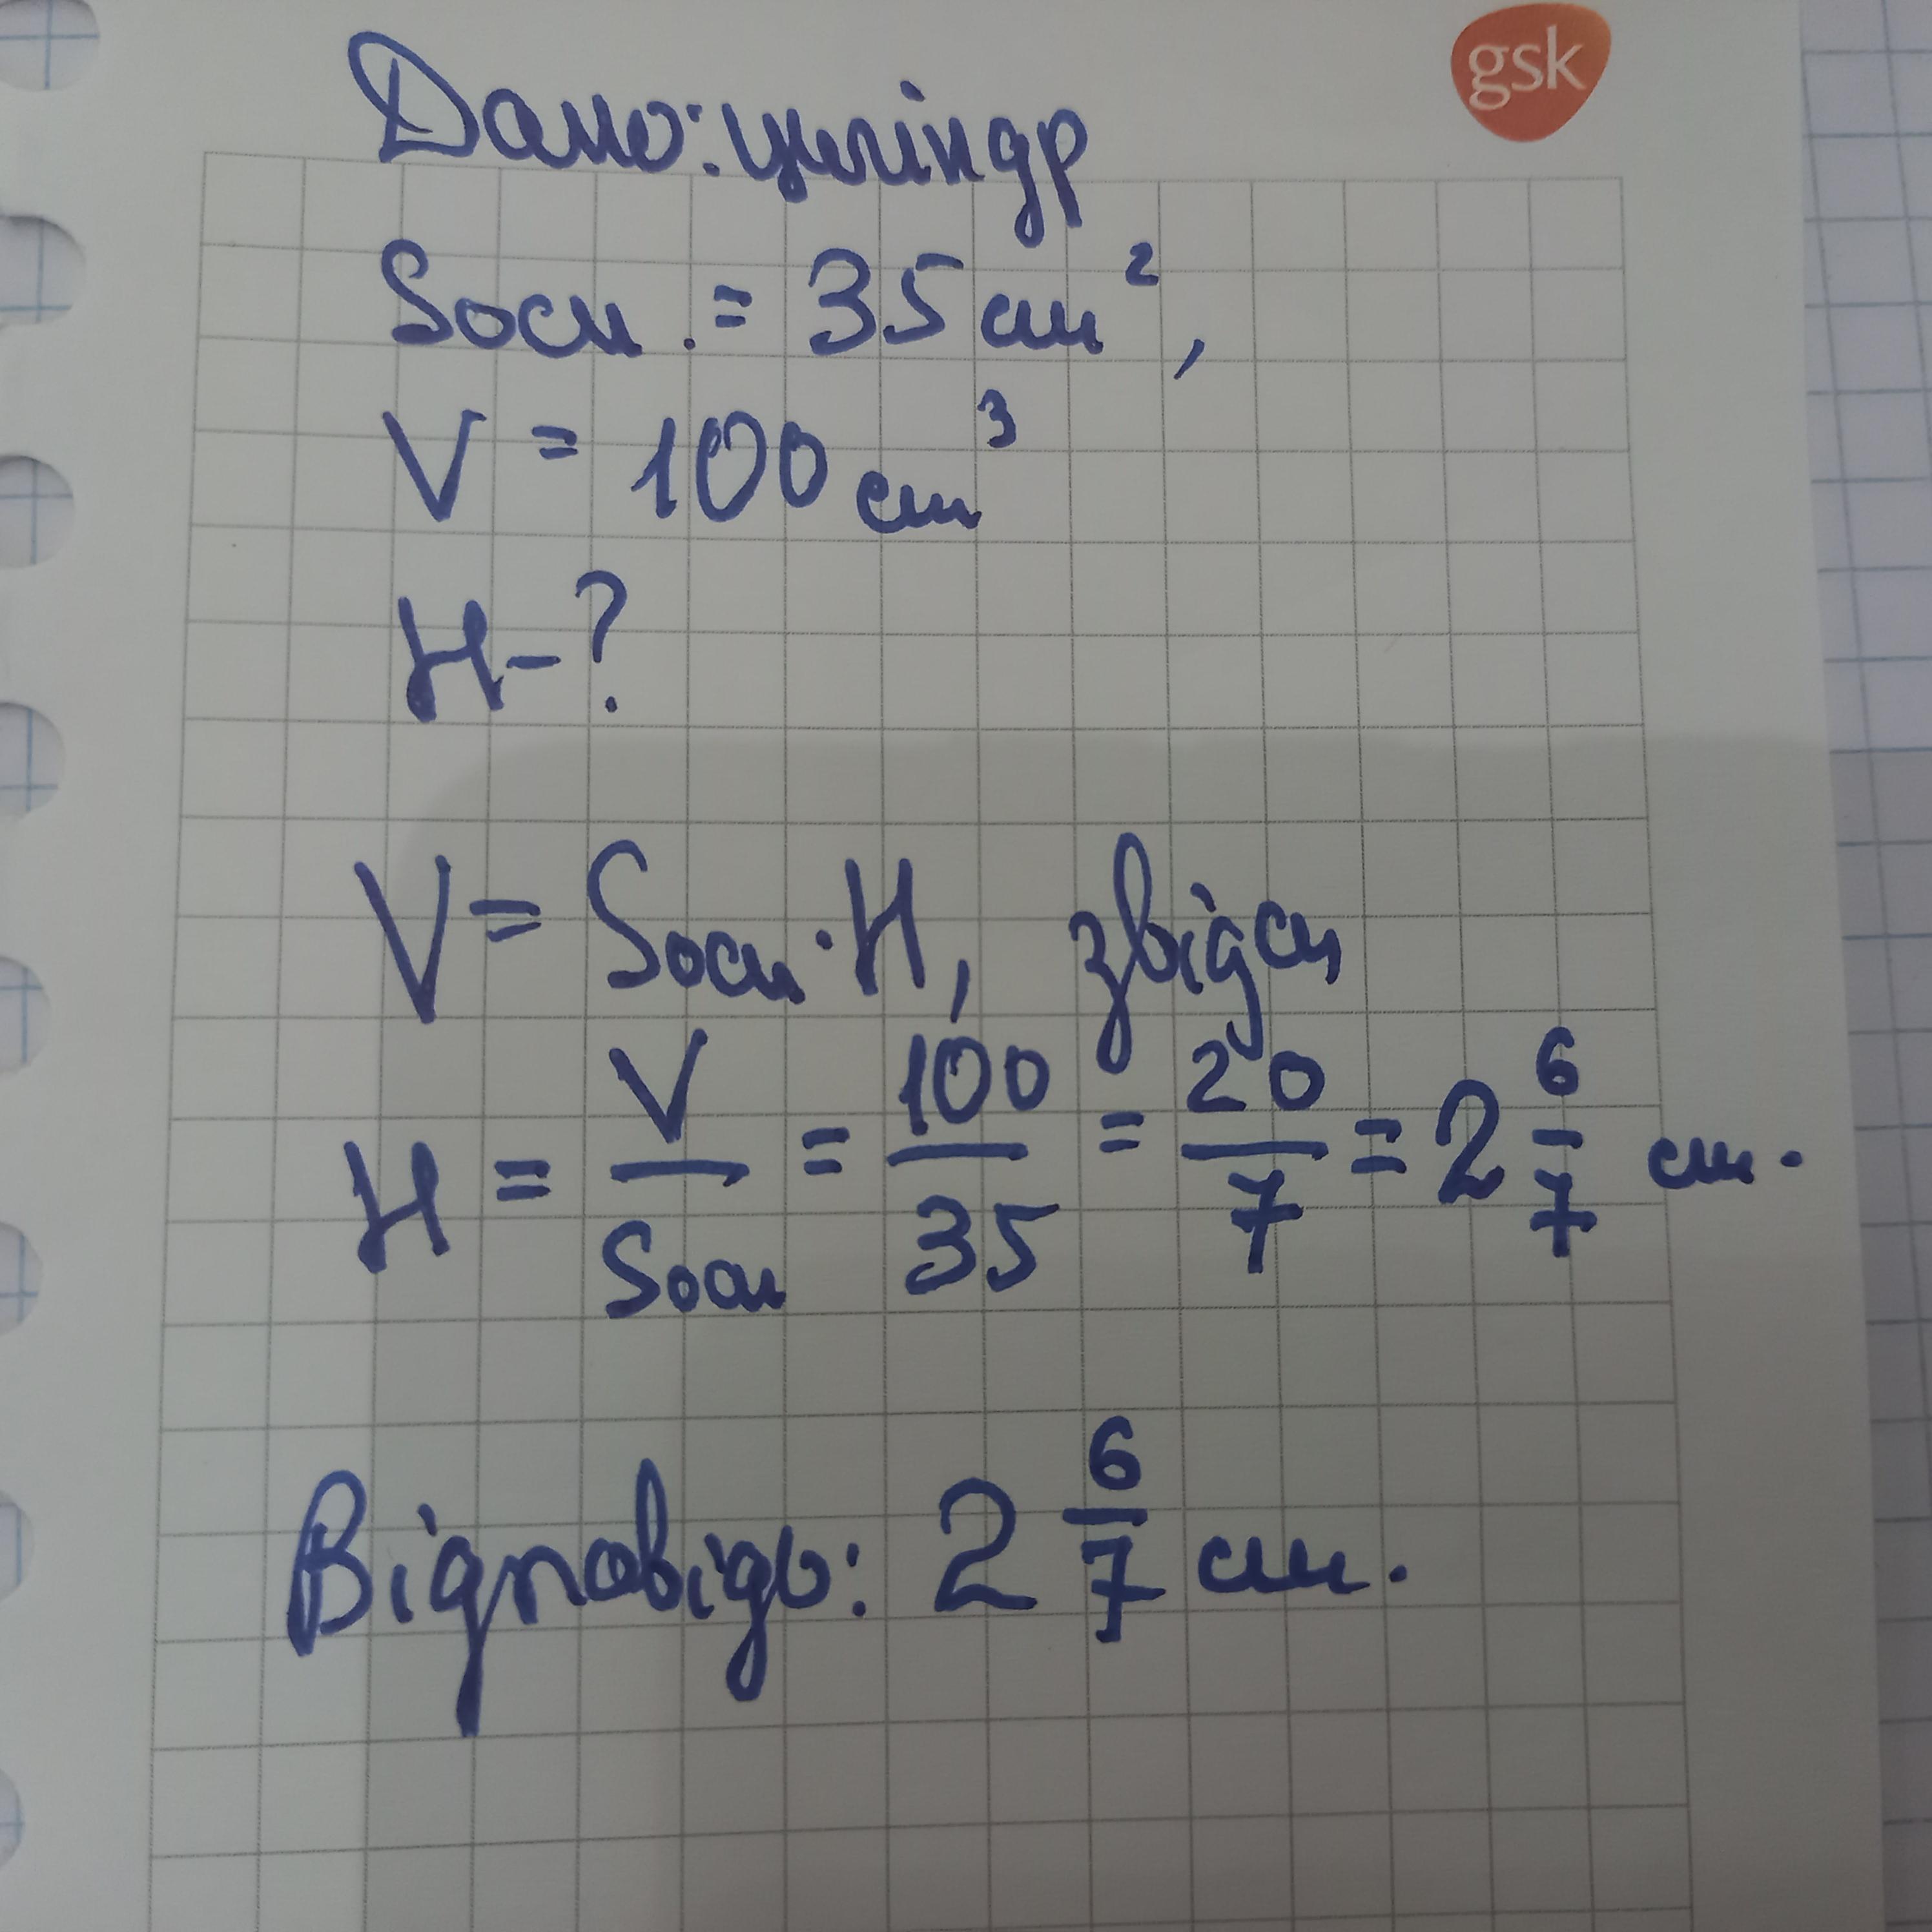 gsk
Дано: циліндр
Sосн. = 35 см²,
V = 100 см³
H - ?
V = Sосн · H, звідси
H = V/Sосн = 100/35 = 20/7 = 2 6/7 см.
Відповідь: 2 6/7 см.